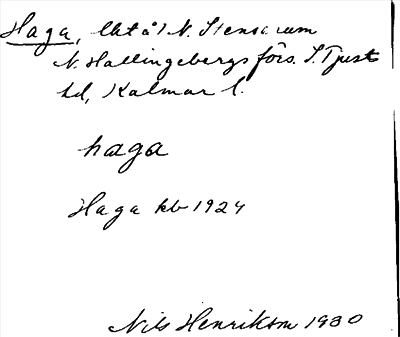 Haga, lht å N. Stensrum
N. Hallingebergs förs. S. Tjust
hd, Kalmar l.
haga
Haga kb 1924
Nils Henrikson 1930